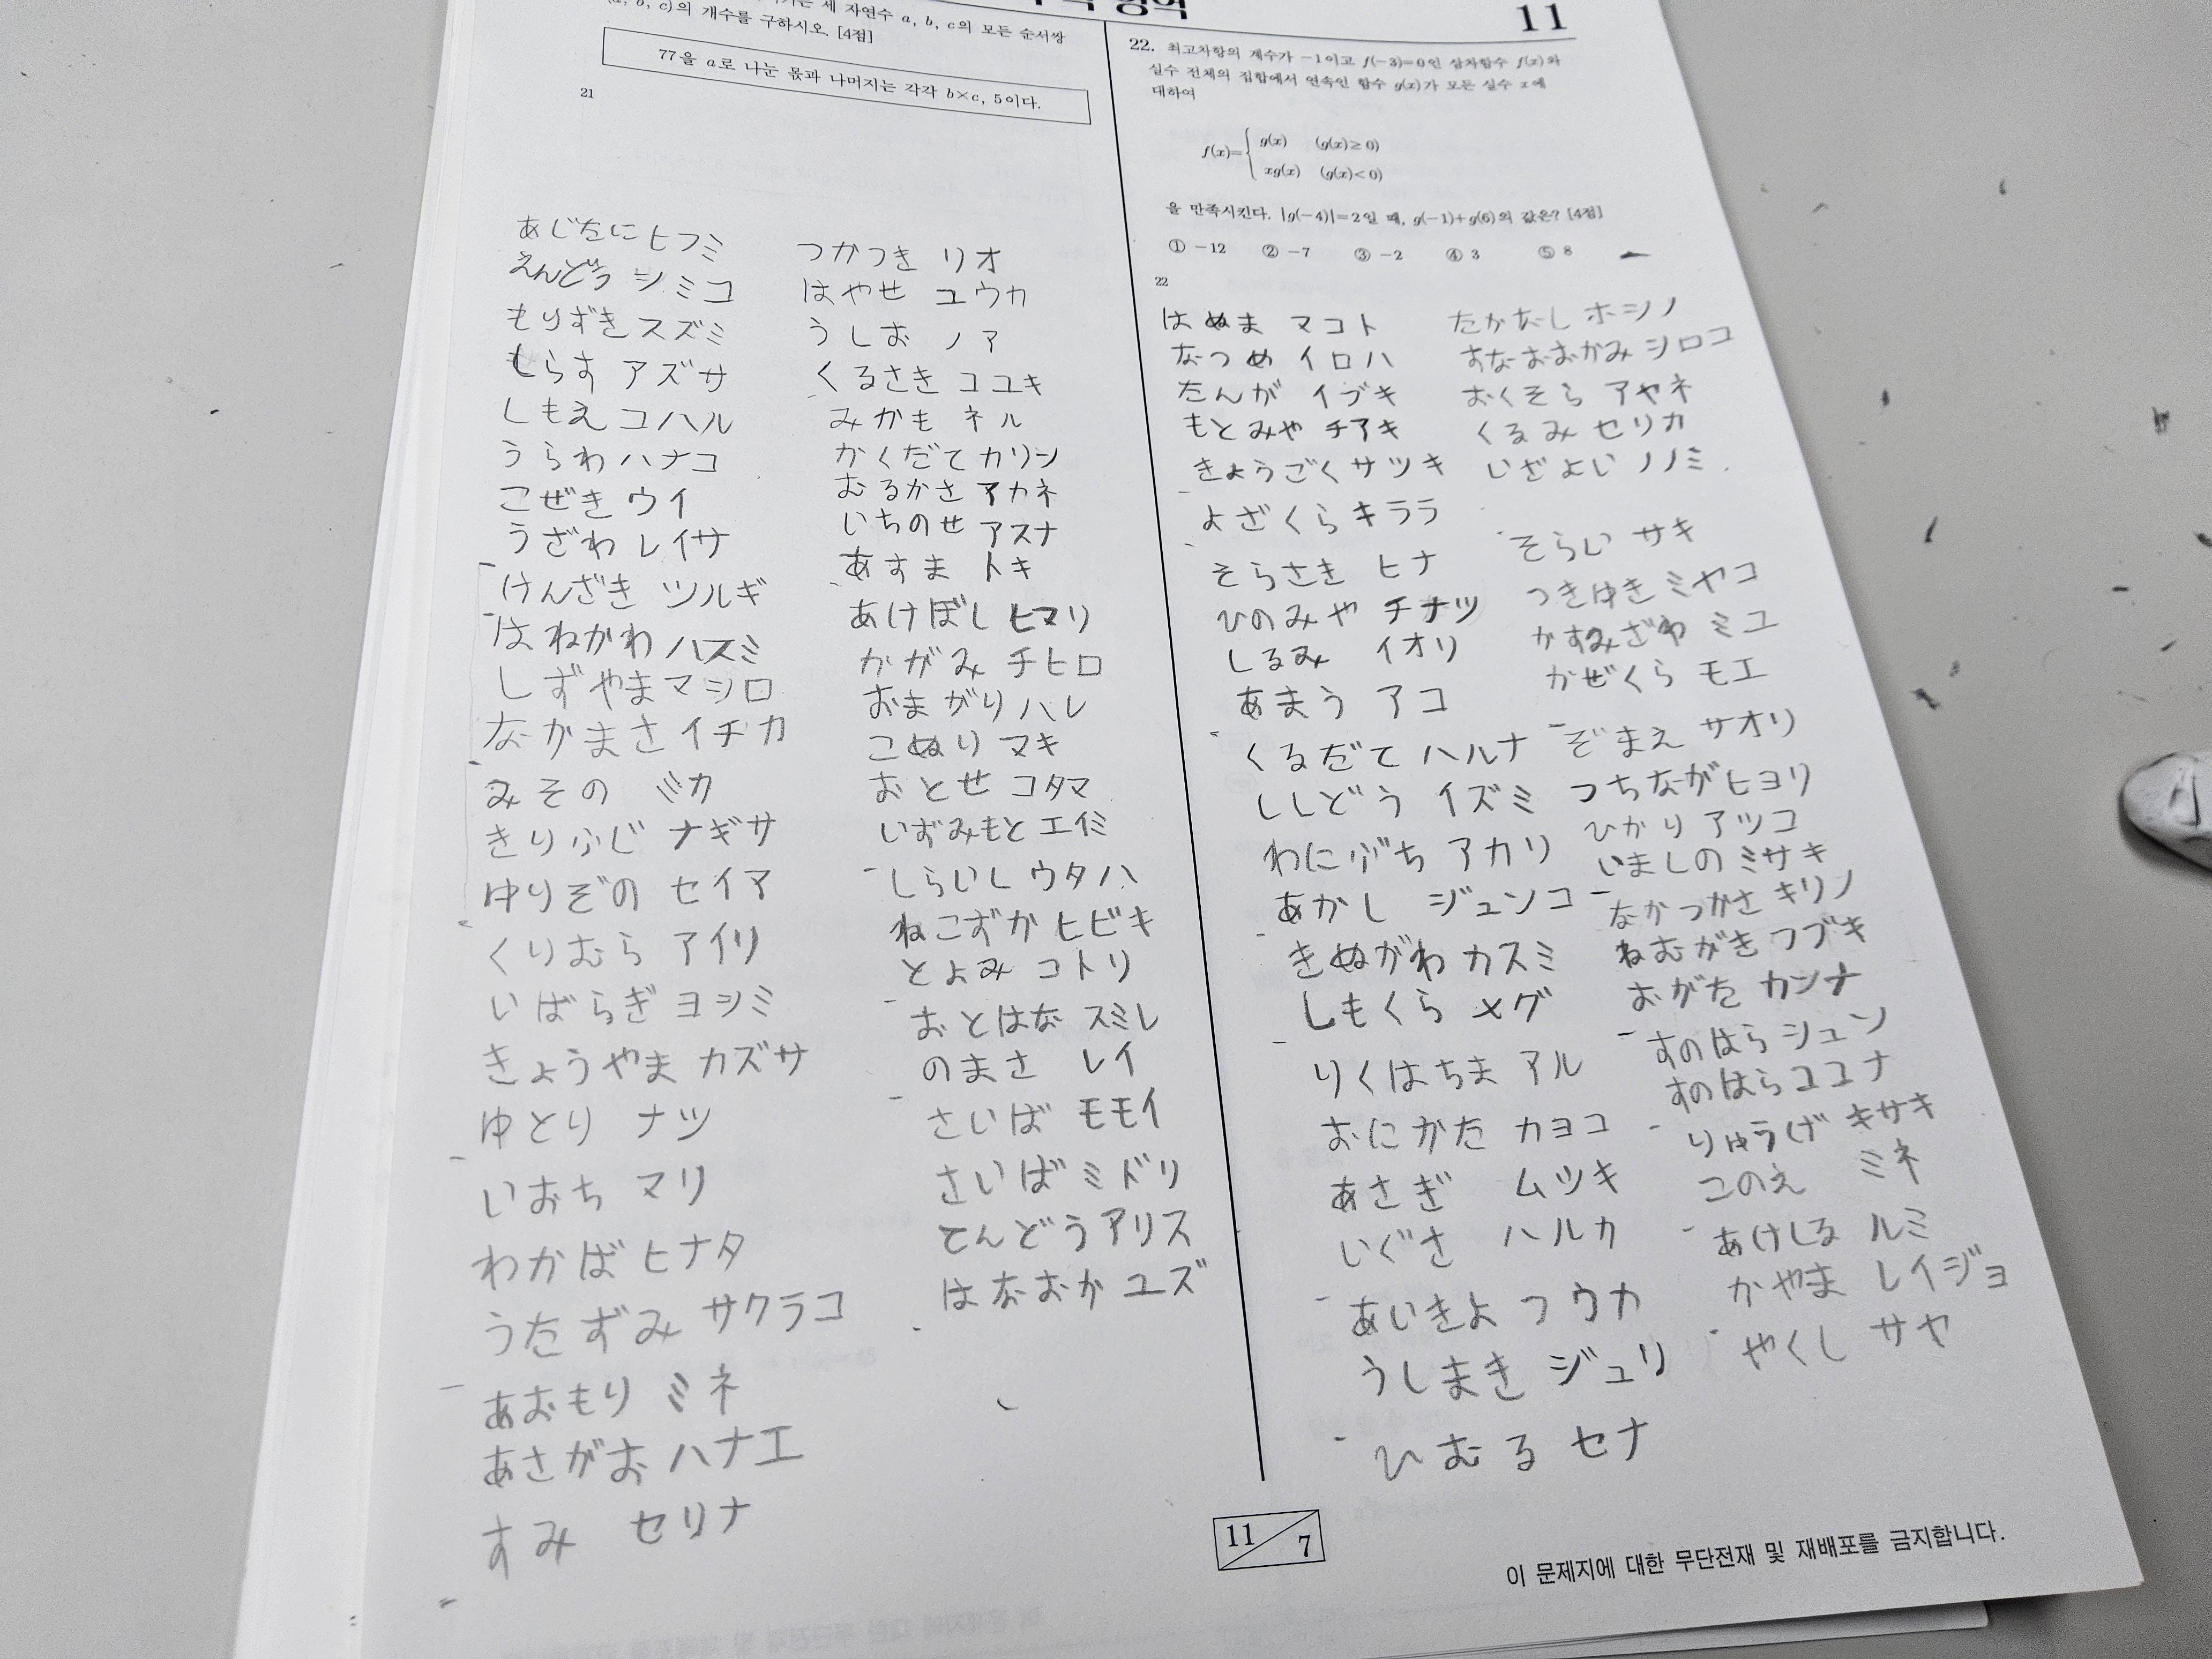 세 자연수 a, b, c의 모든 순서쌍
(a, b, c)의 개수를 구하시오. [4점]
77을 a로 나눈 몫과 나머지는 각각 b×c, 5이다.
21
あじたに ヒフミ
えんどう シミコ
もりずき スズミ
しらす アズサ
しもえ コハル
うらわ ハナコ
こぜき ウイ
うざわ レイサ
けんざき ツルギ
はねかわ ハスミ
しずやま マシロ
なかまさ イチカ
みその ミカ
きりふじ ナギサ
ゆりぞの セイア
くりむら アイリ
いばらぎ ヨシミ
きょうやま カズサ
ゆとり ナツ
いおち マリ
わかば ヒナタ
うたずみ サクラコ
あおもり ミネ
あさがお ハナエ
すみ セリナ
つかつき リオ
はやせ ユウカ
うしお ノア
くるさき コユキ
みかも ネル
かくだて カリン
むろかさ アカネ
いちのせ アスナ
あすま トキ
あけぼし ヒマリ
かがみ チヒロ
おまがり ハレ
こぬり マキ
おとせ コタマ
いずみもと エイミ
しらいし ウタハ
ねこずか ヒビキ
とよみ コトリ
おとはな スミレ
のまさ レイ
さいば モモイ
さいば ミドリ
てんどう アリス
はなおか ユズ
11
22. 최고차항의 계수가 -1이고 f(-3)=0인 삼차함수 f(x)와
실수 전체의 집합에서 연속인 함수 g(x)가 모든 실수 x에
대하여
f(x)={ g(x) (g(x)≥0)
xg(x) (g(x)<0)
을 만족시킨다. |g(-4)|=2일 때, g(-1)+g(6)의 값은? [4점]
① -12 ② -7 ③ -2 ④ 3 ⑤ 8
22
はぬま マコト
なつめ イロハ
たんが イブキ
もとみや チアキ
きょうごく サツキ
よざくら キララ
そらさき ヒナ
ひのみや チナツ
しろみ イオリ
あまう アコ
くろだて ハルナ
ししどう イズミ
わにぶち アカリ
あかし ジュンコ
きぬがわ カスミ
しもくら メグ
りくはちま アル
おにかた カヨコ
あさぎ ムツキ
いぐさ ハルカ
あいきよ フウカ
うしまき ジュリ
ひむろ セナ
たかなし ホシノ
すなおおかみ シロコ
おくそら アヤネ
くろみ セリカ
いざよい ノノミ
そらい サキ
つきゆき ミヤコ
かすみざわ ミユ
かぜくら モエ
ぞまえ サオリ
つちなが ヒヨリ
ひかり アツコ
いましの ミサキ
なかつかさ キリノ
ねむがき フブキ
おがた カンナ
すのはら シュン
すのはら ココナ
りゅうげ キサキ
このえ ミネ
あけしろ ルミ
かやま レイジョ
やくし サヤ
11 7
이 문제지에 대한 무단전재 및 재배포를 금지합니다.